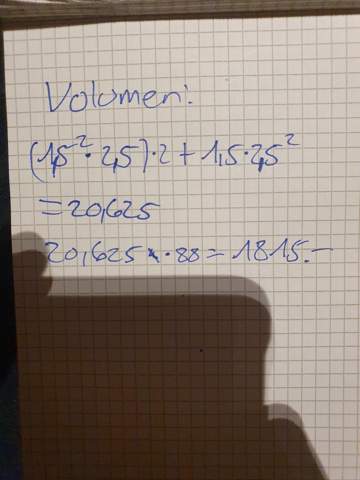 Volumen:
(1,5² · 2,5) · 2 + 1,5 · 2,5²
= 20,625
20,625 · 88 = 1815.–